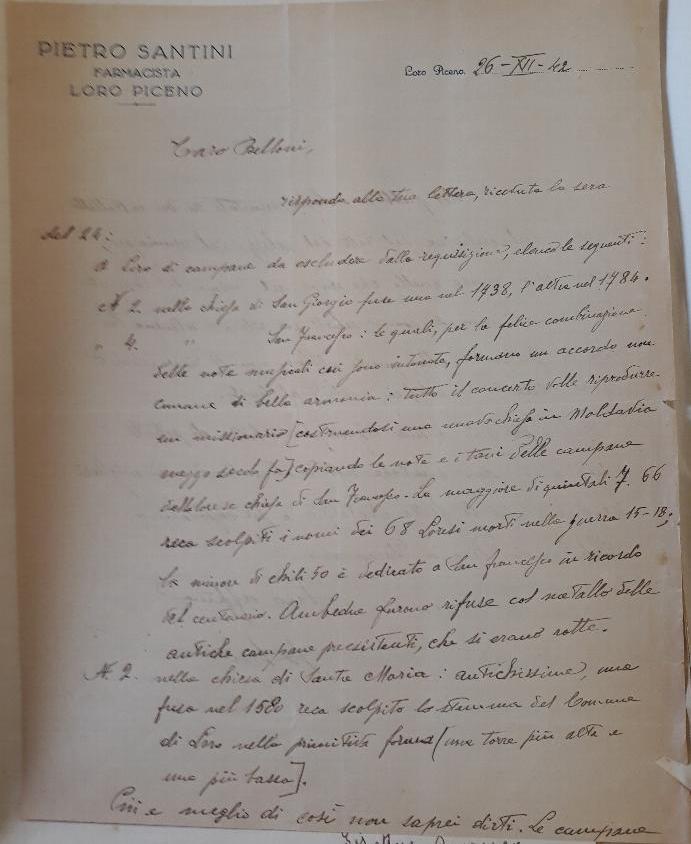 PIETRO SANTINI
FARMACISTA
LORO PICENO
Loro Piceno, 26-XII-42
Caro Belloni,
rispondo alla tua lettera, ricevuta la sera
del 24:
A Loro di campane da escludere dalla requisizione, elenco le seguenti:
N. 2. nella chiesa di San Giorgio fuse una nel 1738, l'altra nel 1784.
" 4. " San Francesco: le quali, per la felice combinazione
delle note musicali cui sono intonate, formano un accordo non
comune di bella armonia: tutto il concerto volle riprodurre
un missionario [costruendosi una nuova chiesa in Moldavia
mezzo secolo fa] copiando le note e i toni delle campane
della lorese chiesa di San Francesco. La maggiore di quintali 7.66
reca scolpiti i nomi dei 68 Loresi morti nella guerra 15-18;
la minore di chili 50 è dedicata a San Francesco in ricordo
del centenario. Ambedue furono rifuse col metallo delle
antiche campane preesistenti, che si erano rotte.
N. 2. nella chiesa di Santa Maria: antichissime, una
fusa nel 1580 reca scolpito lo stemma del Comune
di Loro nella primitiva forma [una torre più alta e
una più bassa].
Più e meglio di così non saprei dirti. Le campane